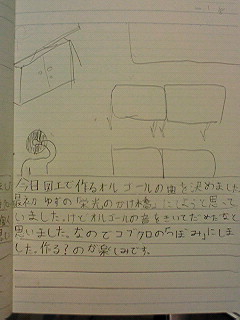 今日図工で作るオルゴールの曲を決めました
最初ゆずの「栄光のかけ橋」にしようと思って
いました。けどオルゴールの音をきいてだめだなと
思いました。なのでコブクロの「つぼみ」にしま
した。作る?のが楽しみです。